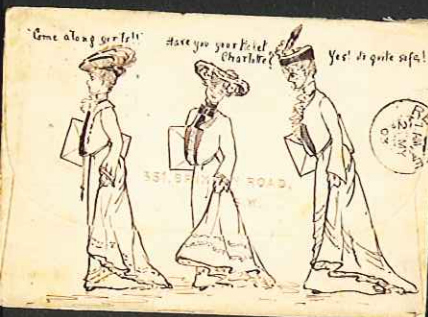 "Come along girls!!
Have you your ticket
Charlotte?
Yes! its quite safe!
351, BRIXTON ROAD,
S.W.
2 MY
03